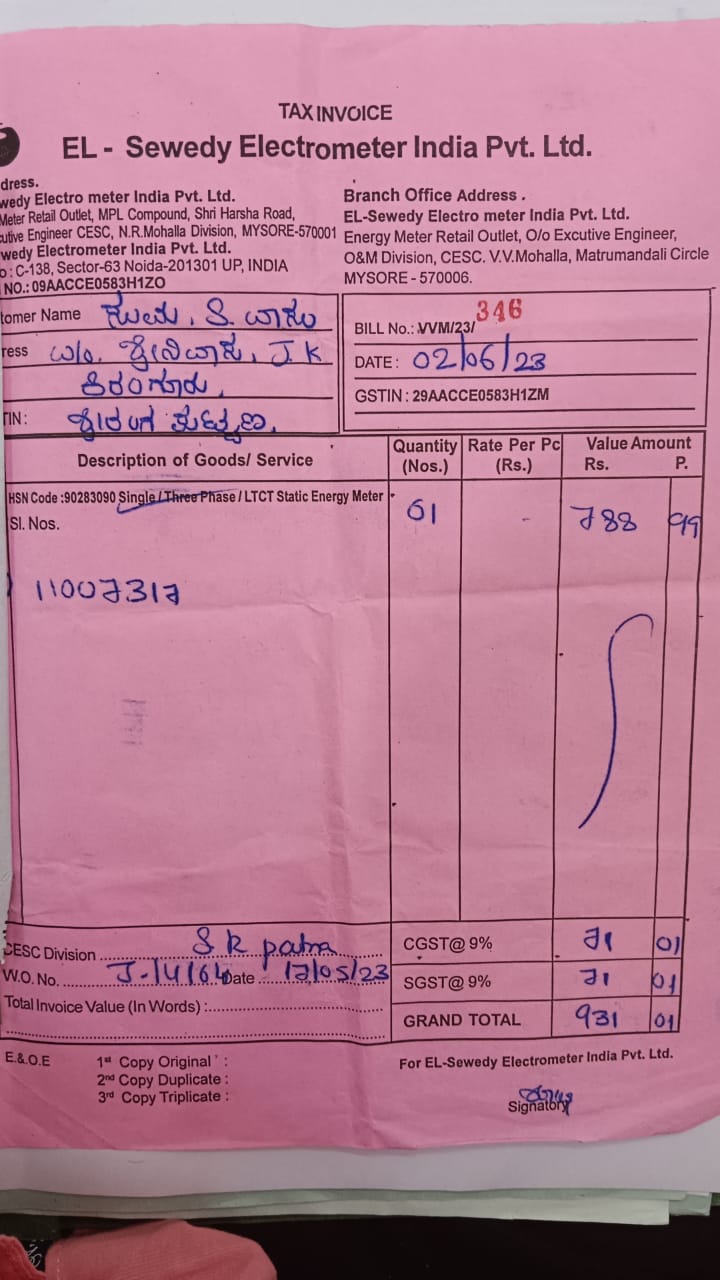 TAX INVOICE
EL - Sewedy Electrometer India Pvt. Ltd.
dress.
wedy Electro meter India Pvt. Ltd.
Meter Retail Outlet, MPL Compound, Shri Harsha Road,
utive Engineer CESC, N.R.Mohalla Division, MYSORE-570001
wedy Electrometer India Pvt. Ltd.
o : C-138, Sector-63 Noida-201301 UP, INDIA
NO.: 09AACCE0583H1ZO
Branch Office Address .
EL-Sewedy Electro meter India Pvt. Ltd.
Energy Meter Retail Outlet, O/o Excutive Engineer,
O&M Division, CESC. V.V.Mohalla, Matrumandali Circle
MYSORE - 570006.
tomer Name S.
ress ಶ್ರೀನಿವಾಸ, J.K
ಕಿರಂಗೂರು,
TIN: ಶ್ರೀರಂಗ
BILL No.: VVM/23/ 346
DATE : 02/06/23
GSTIN : 29AACCE0583H1ZM
Description of Goods/ Service Quantity (Nos.) Rate Per Pc (Rs.) Value Amount Rs. P.
HSN Code :90283090 Single / Three Phase / LTCT Static Energy Meter 01 - 788 99
Sl. Nos.
11007317
CESC Division S K patna CGST@ 9% 71 01
W.O. No. J-14164 Date 17/05/23 SGST@ 9% 71 01
Total Invoice Value (In Words) :
GRAND TOTAL 931 01
E.&.O.E 1st Copy Original :
2nd Copy Duplicate :
3rd Copy Triplicate :
For EL-Sewedy Electrometer India Pvt. Ltd.
Signatory